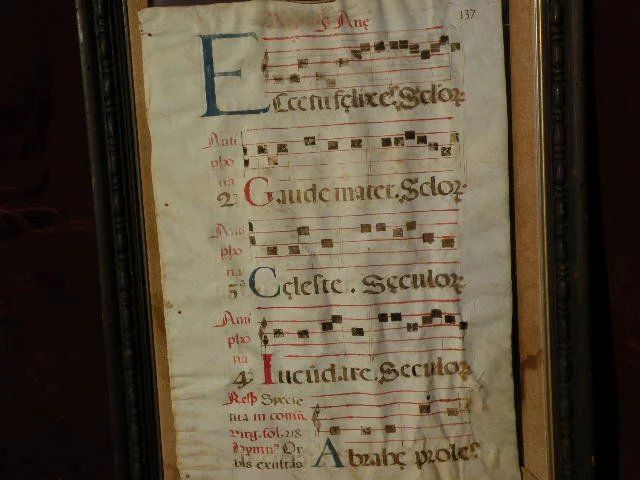 137
S. Anę
Ecce tu fęlix et. Sclor
Anti
pho
na
2ª Gaude mater. Sclor
Anti
pho
na
3ª Cęleste. Sęculor
Anti
pho
na
4ª Iucūdare. Seculor
Resp Specie
tua in comū
virg. fol. 218
Hymnꝰ Or
bis exultās
Abrahę proles